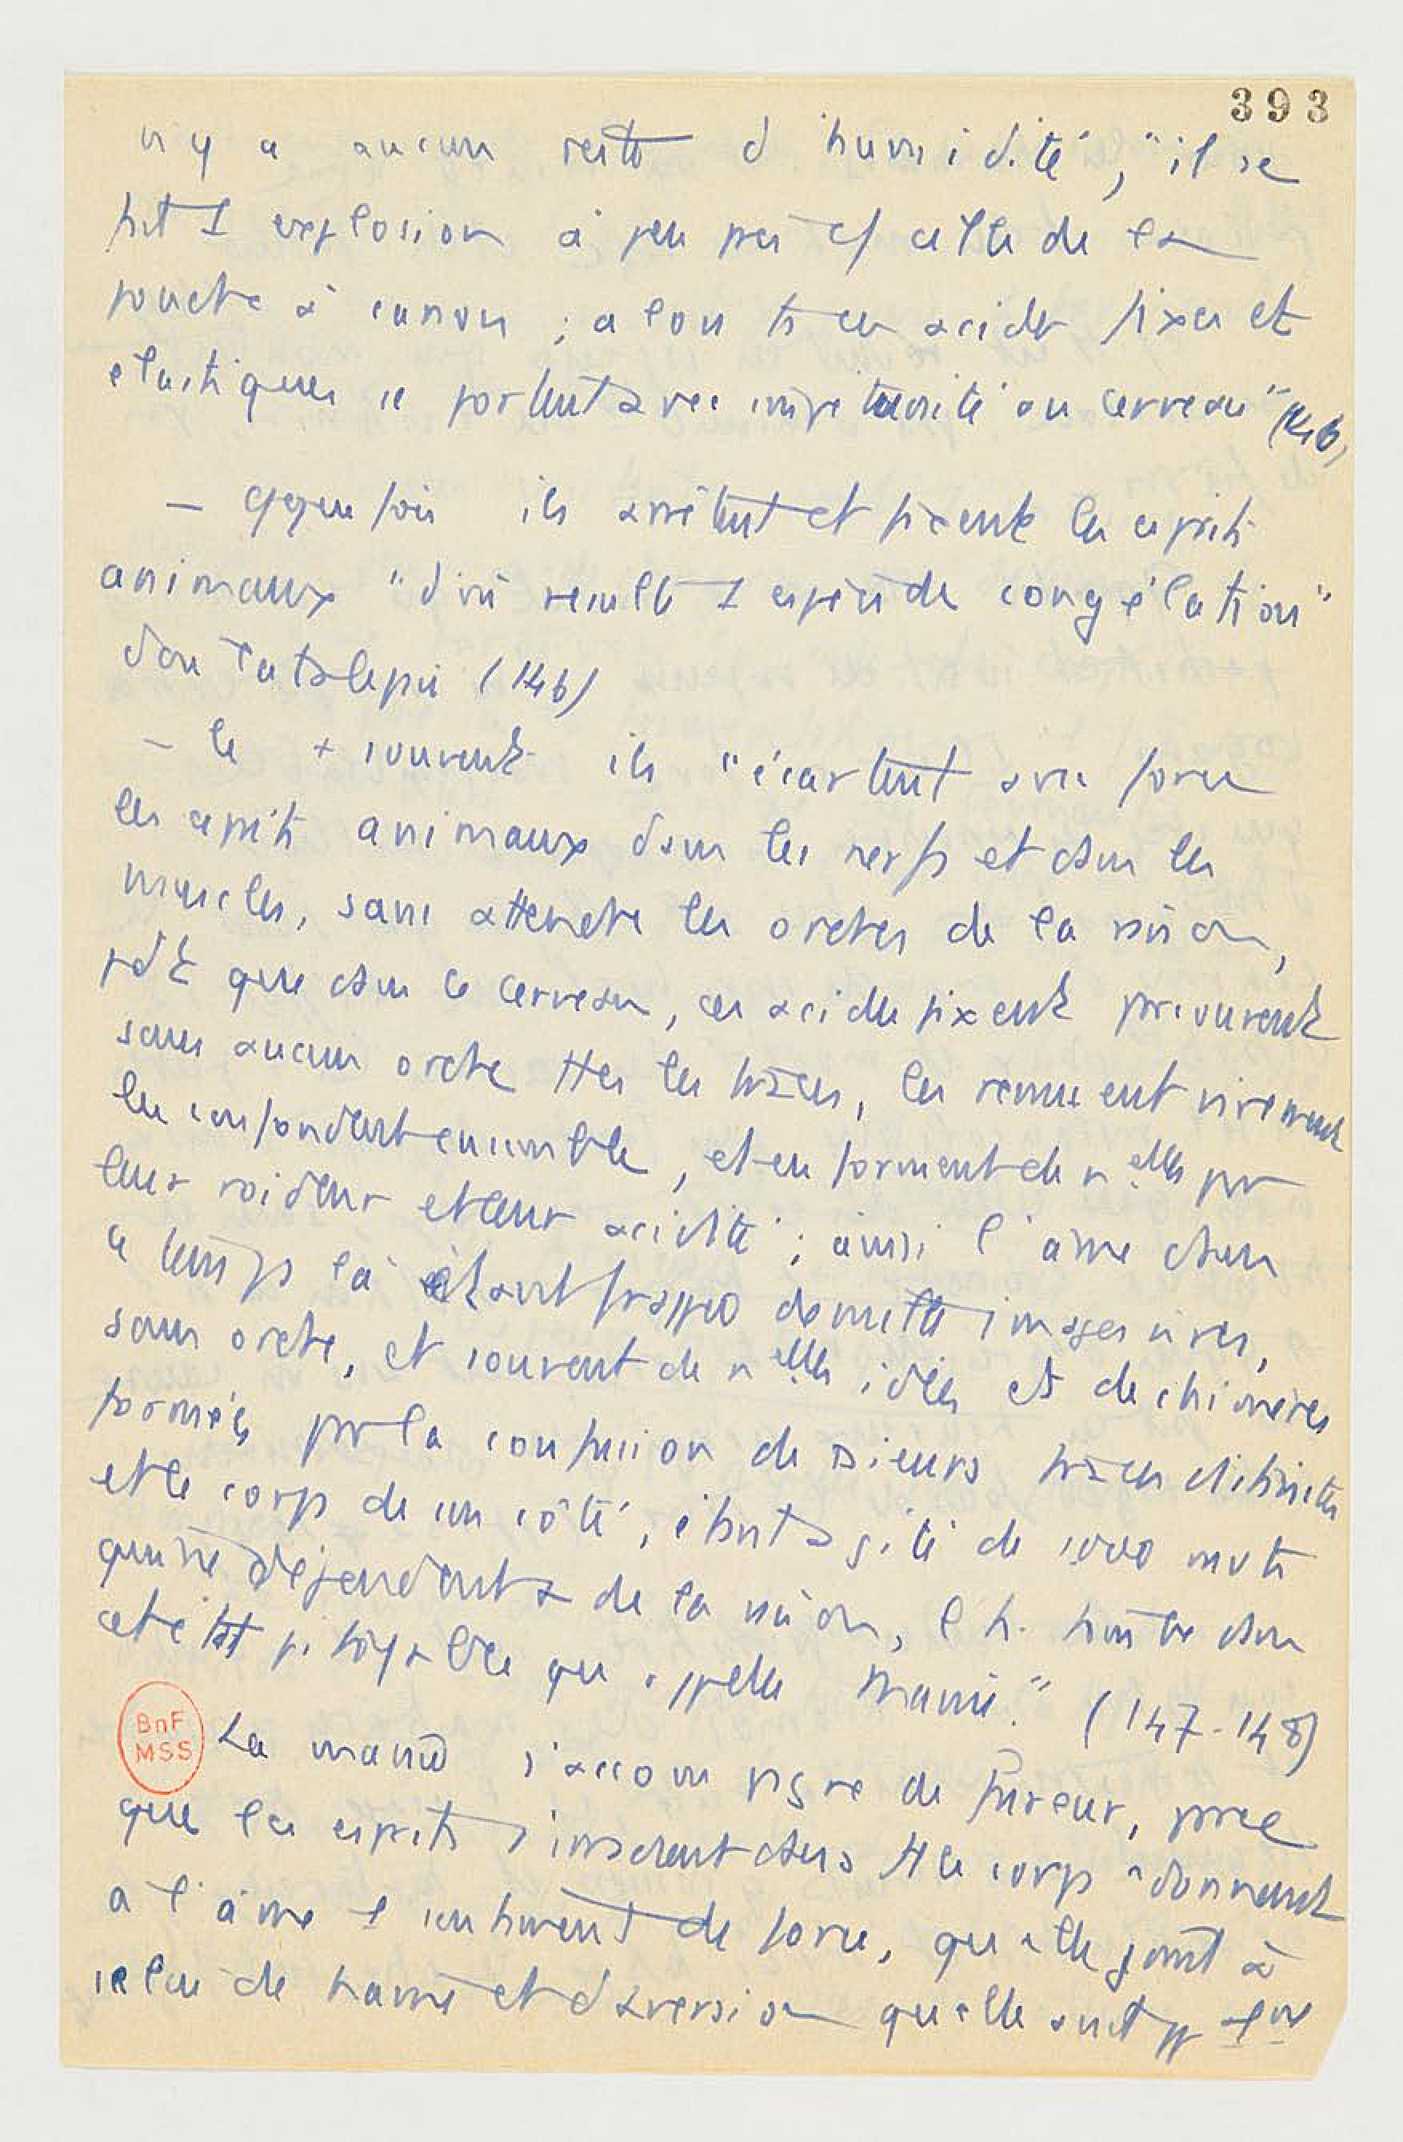 393
n'y a aucun reste d'humidité, "il se
fait 1 explosion à peu près c/ celle de la
poudre à canon ; alors ts ces acides fixes et
élastiques se portent avec impétuosité au cerveau" (146)
– qquefois ils arrêtent et fixent les esprits
animaux "d'où résulte 1 espèce de congélation"
d'où Catalepsie (146)
– le + souvent ils "écartent avec force
les esprits animaux dans les nerfs et dans les
muscles, sans attendre les ordres de la raison,
pdt que dans le cerveau, ces acides fixent parcourent
sans aucun ordre ttes les traces, les remuent vivement
les confondent ensemble, et en forment de nelles par
leur roideur et leur acidité ; ainsi l'âme dans
ce temps là étant frappée de mille images vives,
sans ordre, et souvent de nelles idées et de chimères
formées par la confusion de plsieurs traces distinctes
et le corps de un côté, étant agité de 1000 mvts
qui ne dépendent de la raison, l'h. tombe dans
cet état pitoyable qu'appelle Manie." (147-148)
BnF
MSS
La manie s'accompagne de fureur, parce
que les esprits s'insérant dans tt le corps "donnent
à l'âme 1 sentiment de force, qu'elle joint à
celui de haine et d'aversion qu'elle sent pr